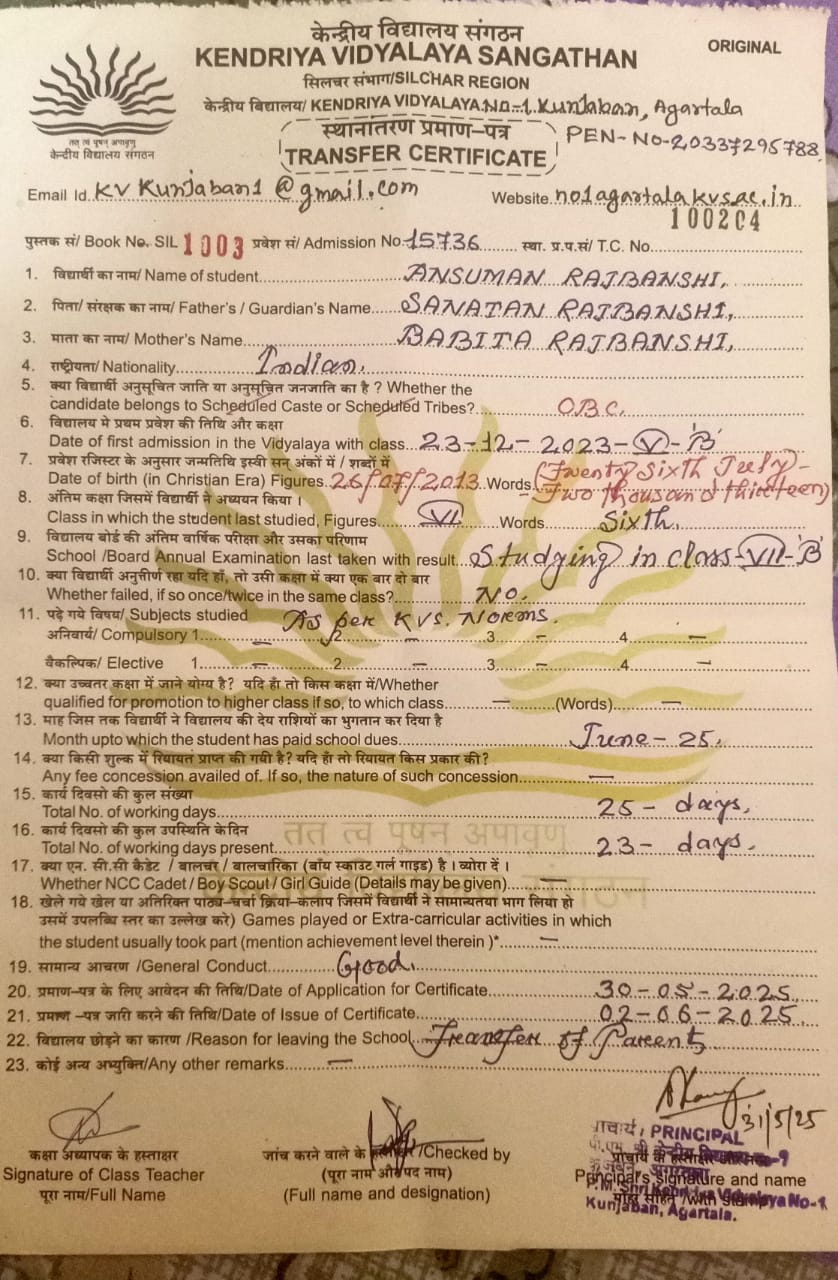 केन्द्रीय विद्यालय संगठन
KENDRIYA VIDYALAYA SANGATHAN
ORIGINAL
सिलचर संभाग/SILCHAR REGION
केन्द्रीय विद्यालय/ KENDRIYA VIDYALAYA No-1 Kunjaban, Agartala
तत् त्वं पूषन् अपावृणु
केन्द्रीय विद्यालय संगठन
स्थानांतरण प्रमाण-पत्र
PEN-No-20337295788
TRANSFER CERTIFICATE
Email Id. KV Kunjaban1 @gmail.com Website no1agartala.kvs.ac.in
पुस्तक सं/ Book No. SIL 1003 प्रवेश सं/ Admission No. 15736 स्था. प्र.प.सं/ T.C. No. 100204
1. विद्यार्थी का नाम/ Name of student ANSUMAN RAJBANSHI,
2. पिता/ संरक्षक का नाम/ Father's / Guardian's Name SANATAN RAJBANSHI,
3. माता का नाम/ Mother's Name BABITA RAJBANSHI,
4. राष्ट्रीयता/ Nationality Indian,
5. क्या विद्यार्थी अनुसूचित जाति या अनुसूचित जनजाति का है ? Whether the
candidate belongs to Scheduled Caste or Scheduled Tribes? OBC.
6. विद्यालय मे प्रथम प्रवेश की तिथि और कक्षा
Date of first admission in the Vidyalaya with class 23-12-2023-V-'B'
7. प्रवेश रजिस्टर के अनुसार जन्मतिथि इस्वी सन् अंकों में / शब्दों में
Date of birth (in Christian Era) Figures 26/07/2013 Words (Twenty Sixth July-
-Two thousand thirteen)
8. अंतिम कक्षा जिसमें विद्यार्थी ने अध्ययन किया ।
Class in which the student last studied, Figures VI Words Sixth.
9. विद्यालय बोर्ड की अंतिम वार्षिक परीक्षा और उसका परिणाम
School /Board Annual Examination last taken with result Studying in class-VII-'B'
10. क्या विद्यार्थी अनुत्तीर्ण रहा यदि हाँ, तो उसी कक्षा में क्या एक बार दो बार
Whether failed, if so once/twice in the same class? No.
11. पढ़े गये विषय/ Subjects studied As per KVS. Norms.
अनिवार्य/ Compulsory 1. – 2. – 3. – 4. –
वैकल्पिक/ Elective 1. – 2. – 3. – 4. –
12. क्या उच्चतर कक्षा में जाने योग्य है? यदि हाँ तो किस कक्षा में/Whether
qualified for promotion to higher class if so, to which class – (Words) –
13. माह जिस तक विद्यार्थी ने विद्यालय की देय राशियों का भुगतान कर दिया है
Month upto which the student has paid school dues June-25.
14. क्या किसी शुल्क में रियायत प्राप्त की गयी है? यदि हाँ तो रियायत किस प्रकार की?
Any fee concession availed of. If so, the nature of such concession –
15. कार्य दिवसो की कुल संख्या
Total No. of working days 25- days,
16. कार्य दिवसो की कुल उपस्थिति के दिन
Total No. of working days present 23- days.
तत् त्वं पूषन् अपावृणु
17. क्या एन. सी.सी कैडेट / बालचर / बालचारिका (बाॅय स्काउट गर्ल गाइड) है । व्योरा दें ।
Whether NCC Cadet / Boy Scout / Girl Guide (Details may be given) –
18. खेले गये खेल या अतिरिक्त पाठ्य-चर्चा क्रिया-कलाप जिसमें विद्यार्थी ने सामान्यतया भाग लिया हो
उसमें उपलब्धि स्तर का उल्लेख करे) Games played or Extra-carricular activities in which
the student usually took part (mention achievement level therein )* –
19. सामान्य आचरण /General Conduct Good.
20. प्रमाण-पत्र के लिए आवेदन की तिथि/Date of Application for Certificate 30-05-2025
21. प्रमाण-पत्र जारी करने की तिथि/Date of Issue of Certificate 02-06-2025
22. विद्यालय छोड़ने का कारण /Reason for leaving the School Transfer of Parents
23. कोई अन्य अभ्युक्ति/Any other remarks –
31/5/25
प्राचार्य / PRINCIPAL
कक्षा अध्यापक के हस्ताक्षर जांच करने वाले के /Checked by
Signature of Class Teacher (पूरा नाम और पद नाम) Principal's signature and name
पूरा नाम/Full Name (Full name and designation) with stamp
P.M. Shri Kendriya Vidyalaya No-1
Kunjaban, Agartala.